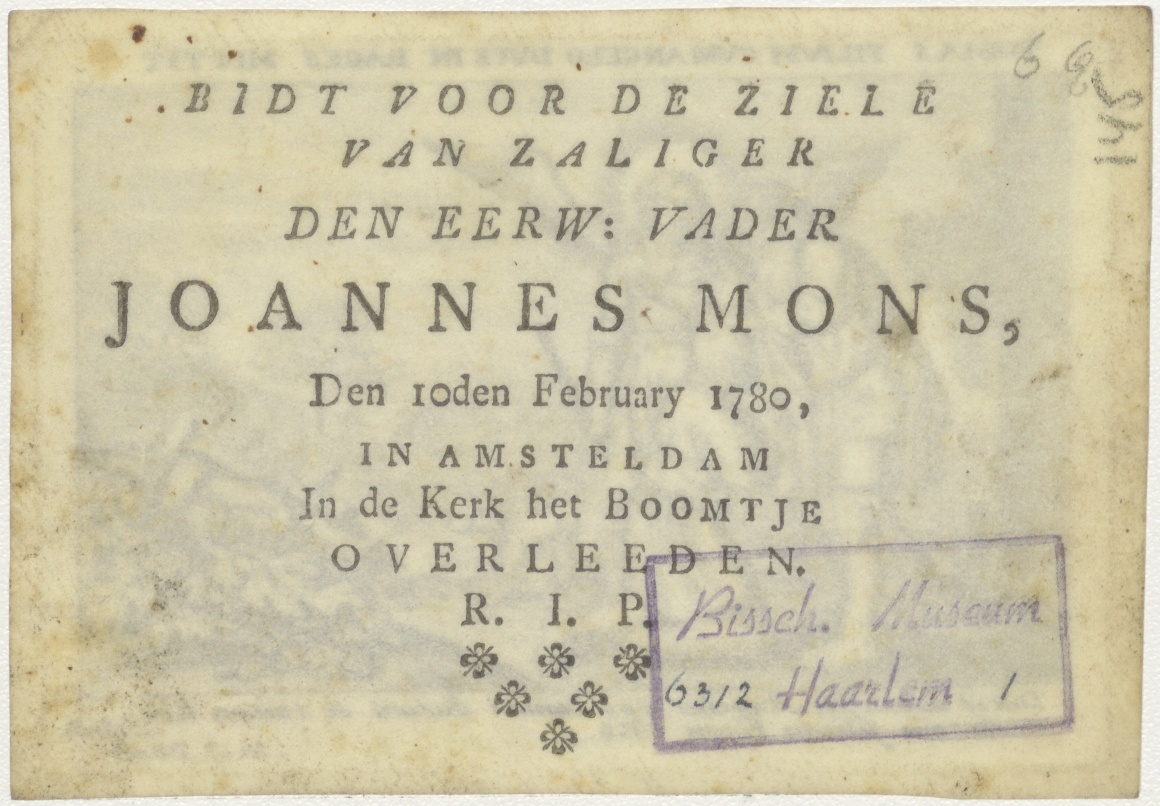 BIDT VOOR DE ZIELE
VAN ZALIGER
DEN EERW: VADER
JOANNES MONS,
Den 10den February 1780,
IN AMSTELDAM
In de Kerk het BOOMTJE
OVERLEEDEN.
R. I. P.
Bissch. Museum
6312 Haarlem 1
145